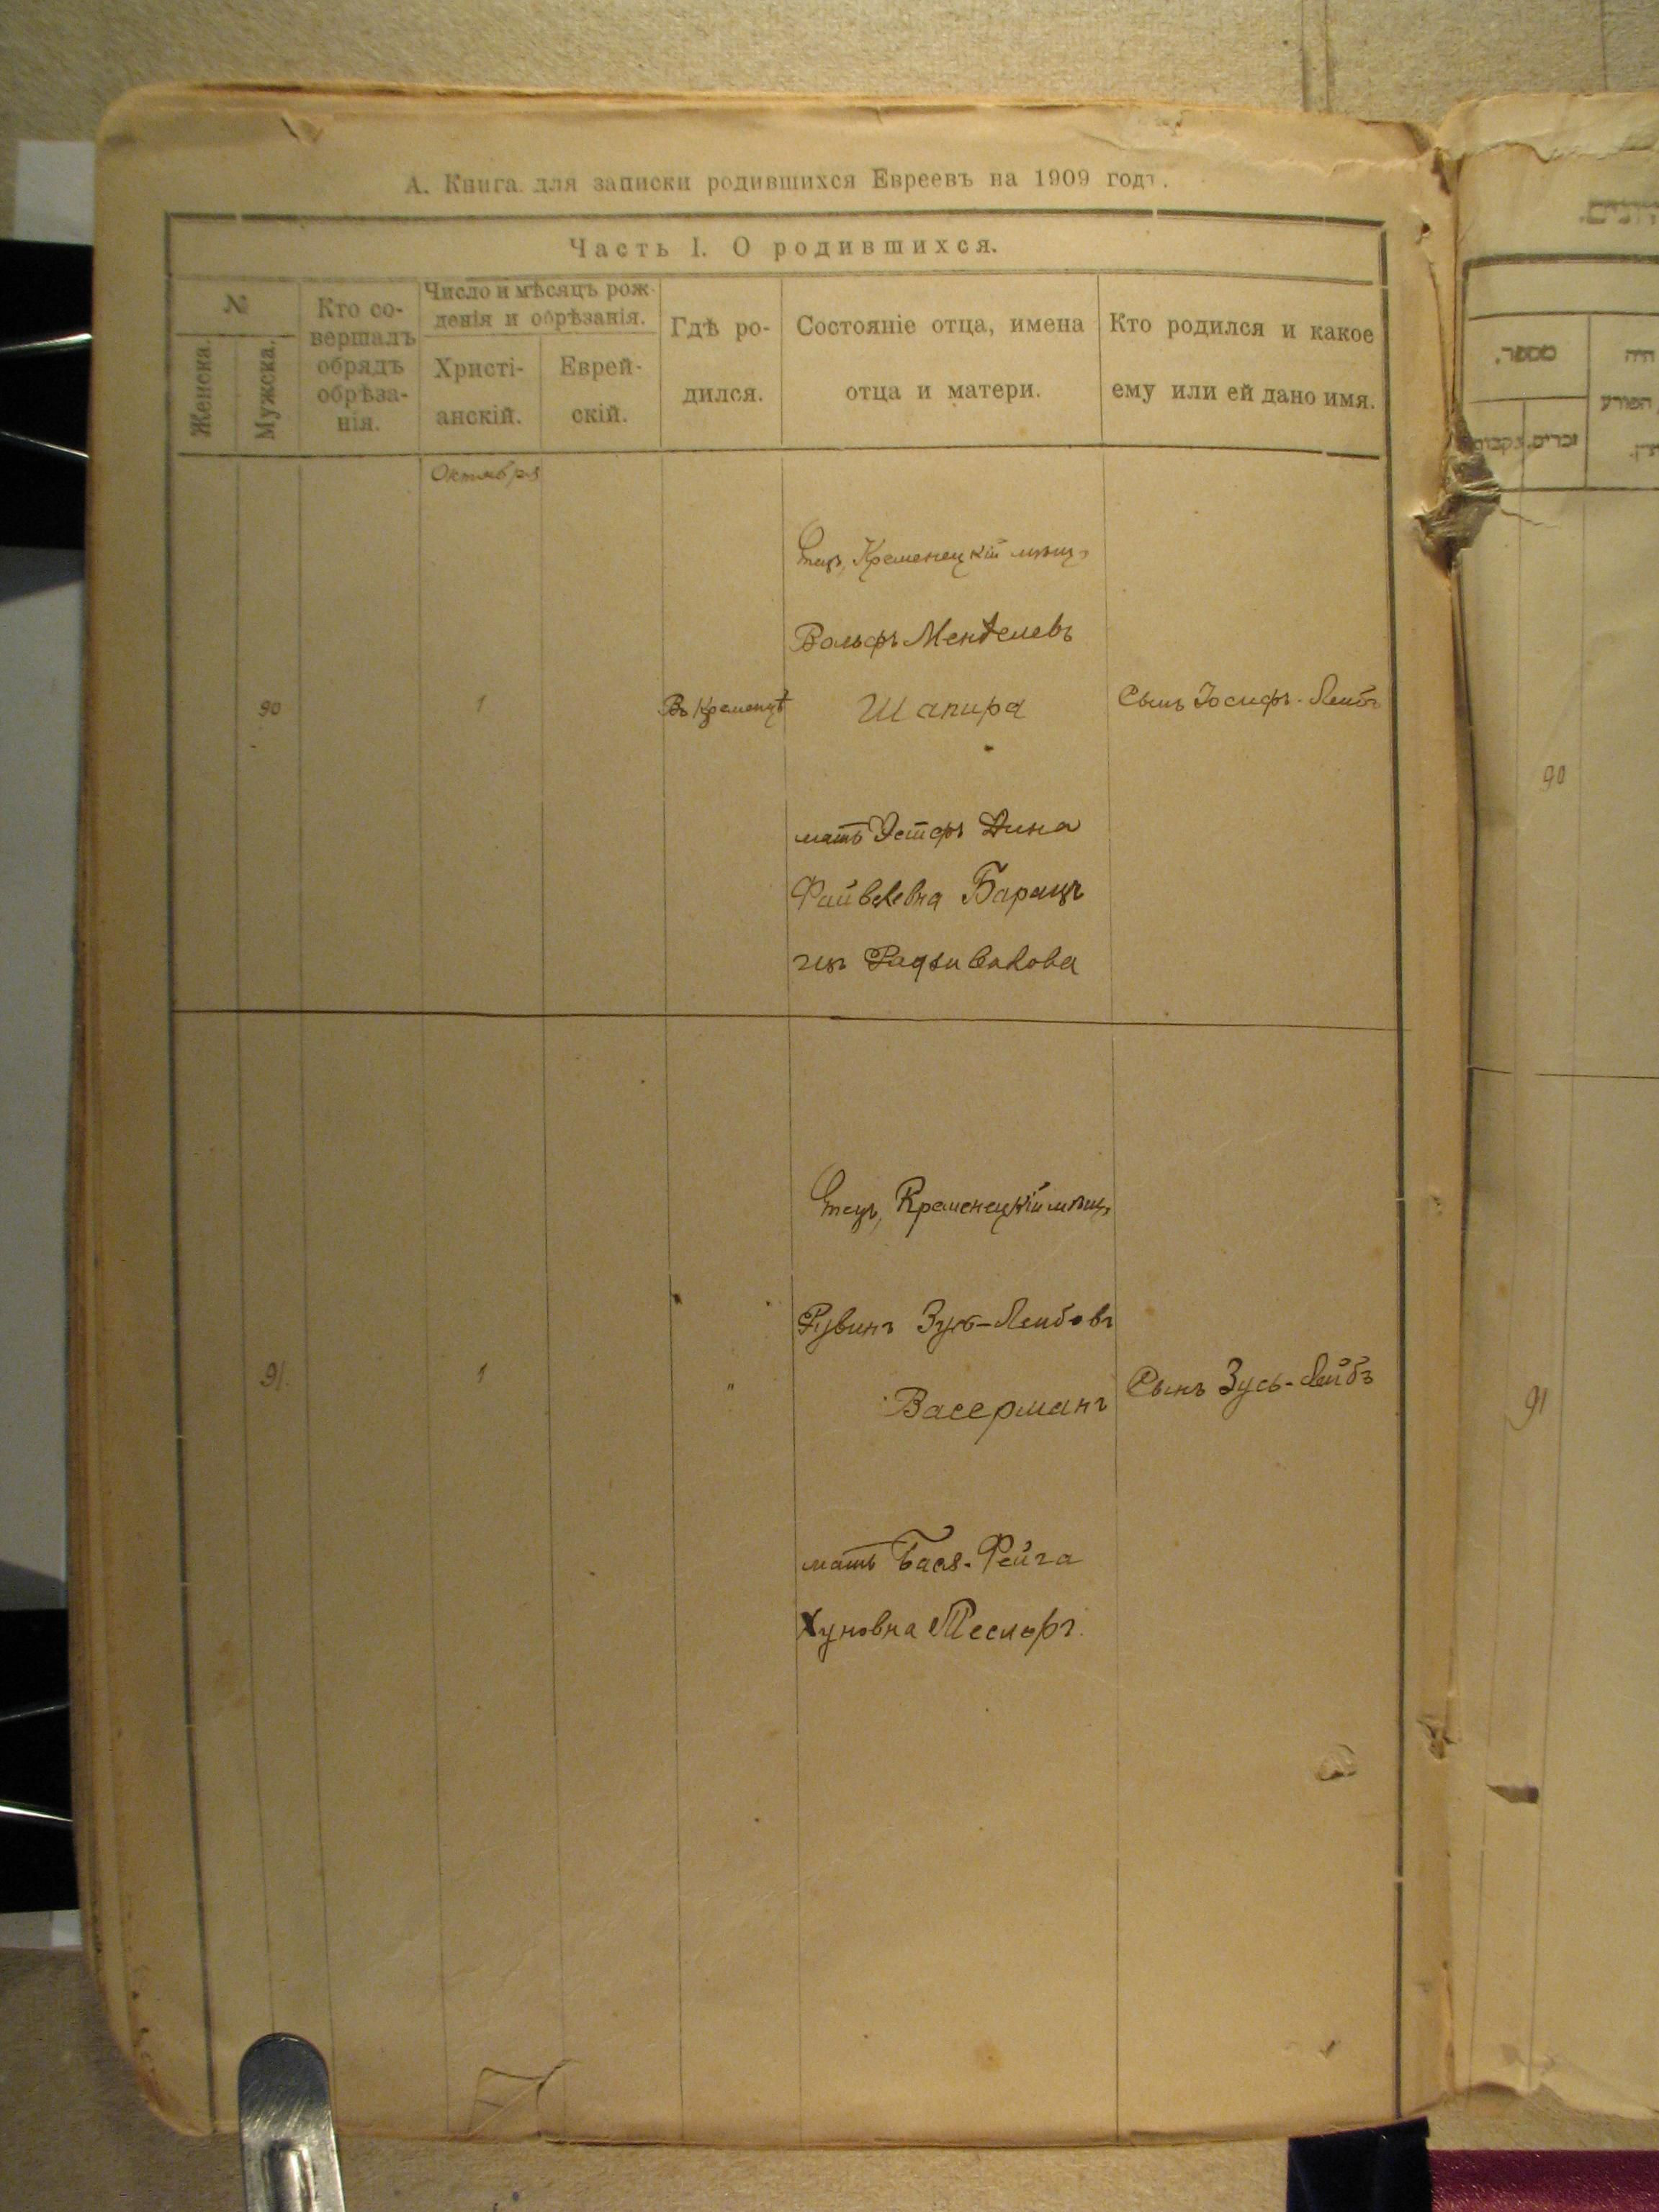 А. Книга для записки родившихся Евреевъ на 1909 годъ.
Часть I. О родившихся.
№
Женска.
Мужска.
Кто со-
вершалъ
обрядъ
обрѣза-
нія.
Число и мѣсяцъ рож-
денія и обрѣзанія.
Христі-
анскій.
Еврей-
скій.
Гдѣ ро-
дился.
Состояніе отца, имена
отца и матери.
Кто родился и какое
ему или ей дано имя.
Октября
Отецъ, Кременецкій мѣщ.
Вольфъ Менделевъ
90
1
Въ Кременцѣ
Шапира
Сынъ Іосифъ-Лейбъ
мать Эстеръ Дина
Файвелевна Барацъ
изъ Радзивилова
Отецъ, Кременецкій мѣщ.
Рувинъ Зусь-Лейбовъ
91.
1
"
Васерманъ
Сынъ Зусь-Лейбъ
мать Бася-Фейга
Хуновна
מספר.
זכרים.
נקבות
היה
90
91